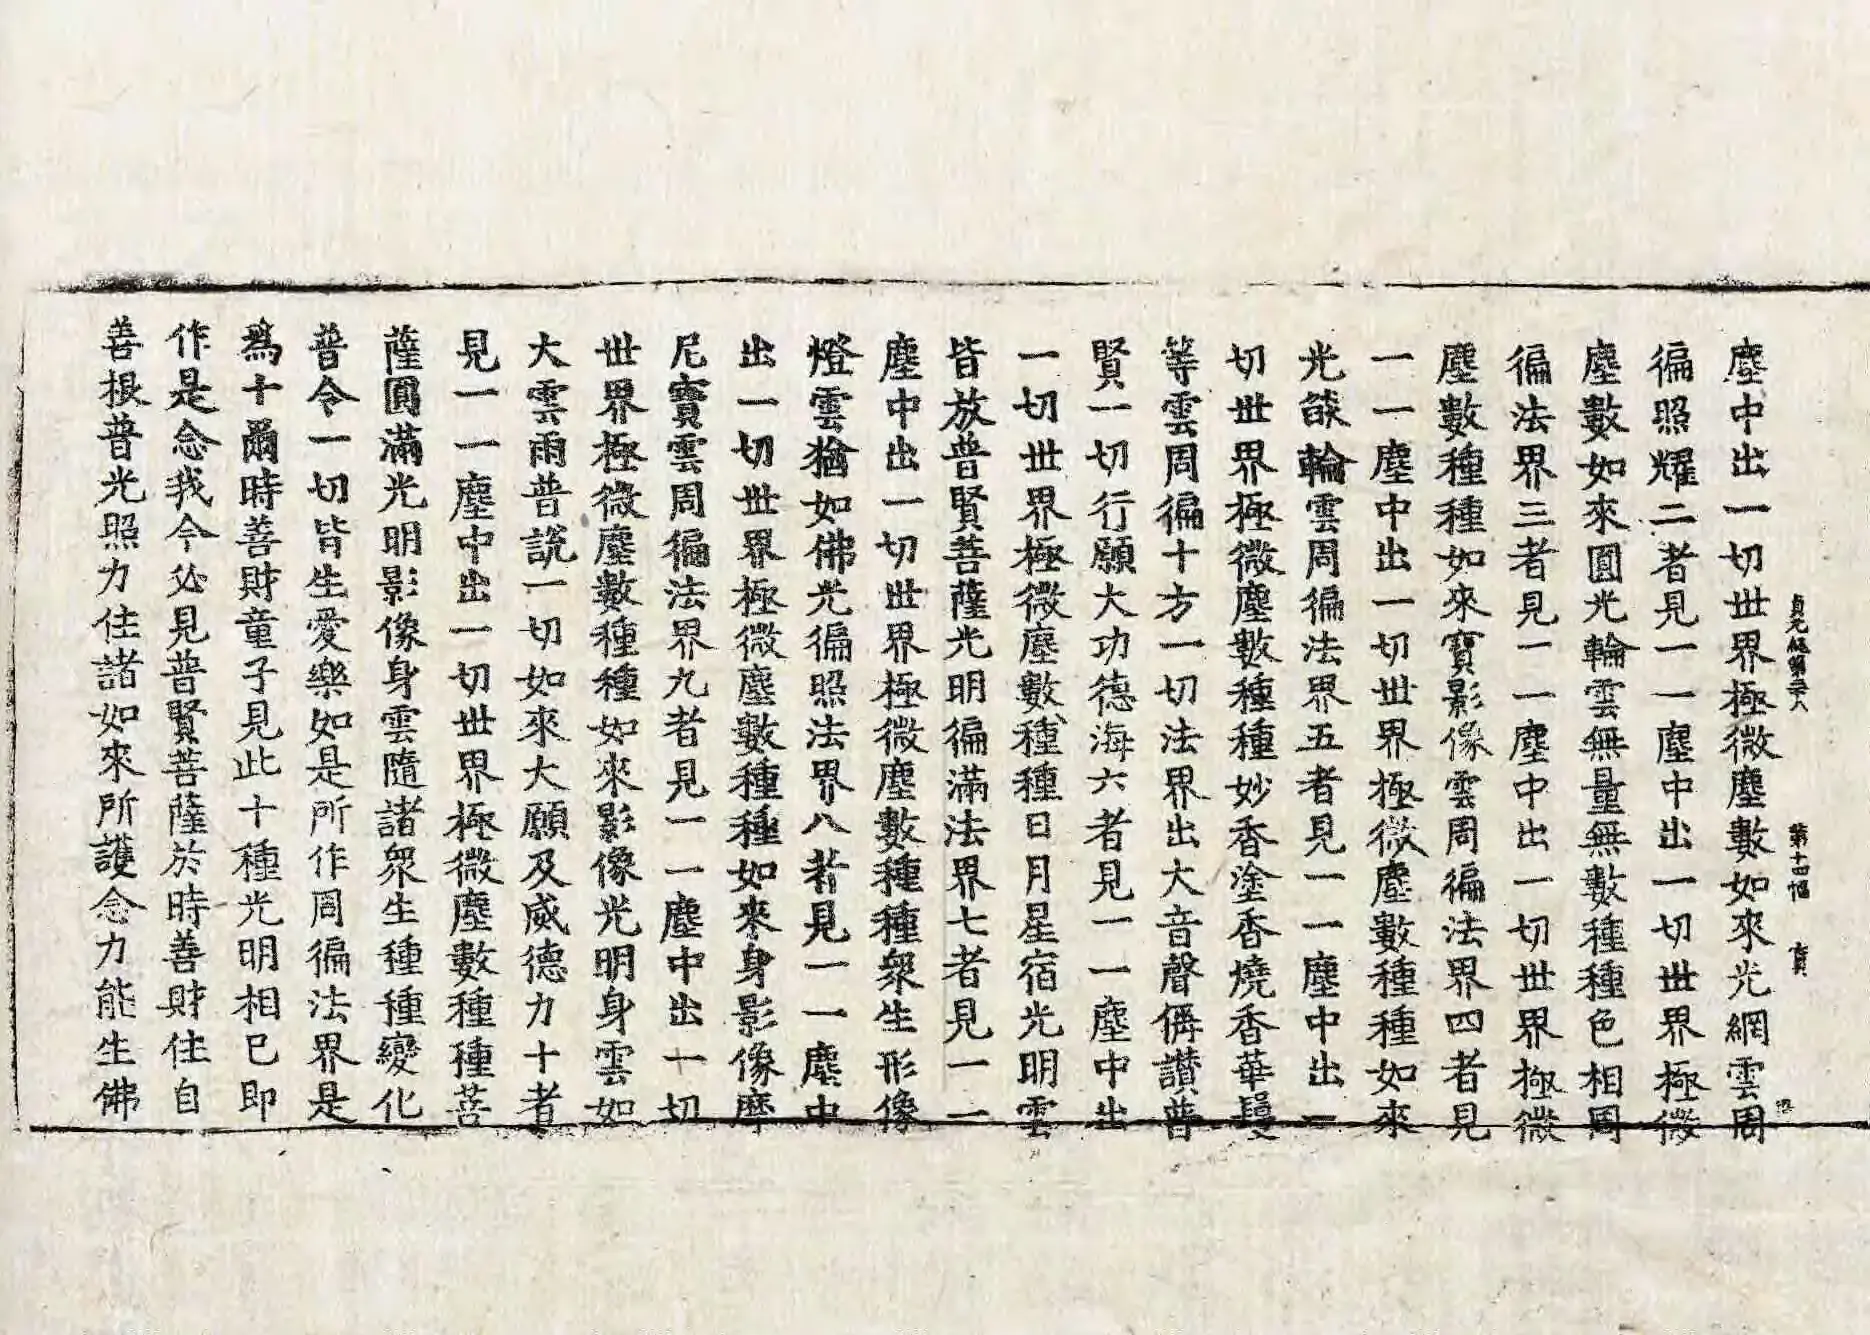 塵中出一切世界極微塵數如來光網雲周
徧照耀二者見一一塵中出一切世界極微
塵數如來圓光輪雲無量無數種種色相周
徧法界三者見一一塵中出一切世界極微
塵數種種如來寶影像雲周徧法界四者見
一一塵中出一切世界極微塵數種種如來
光燄輪雲周徧法界五者見一一塵中出一
切世界極微塵數種種妙香塗香燒香華鬘
等雲周徧十方一切法界出大音聲偁讃普
賢一切行願大功德海六者見一一塵中出
一切世界極微塵數種種日月星宿光明雲
皆放普賢菩薩光明徧滿法界七者見一一
塵中出一切世界極微塵數種種眾生形像
燈雲猶如佛光徧照法界八者見一一塵中
出一切世界極微塵數種種如來身影像摩
尼寶雲周徧法界九者見一一塵中出一切
世界極微塵數種種如來影像光明身雲如
大雲雨普說一切如來大願及威德力十者
見一一塵中出一切世界極微塵數種種菩
薩圓滿光明影像身雲隨諸眾生種種變化
普令一切皆生愛樂如是所作周徧法界是
為十爾時善財童子見此十種光明相已即
作是念我今必見普賢菩薩於時善財住自
善根普光照力住諸如來所護念力能生佛